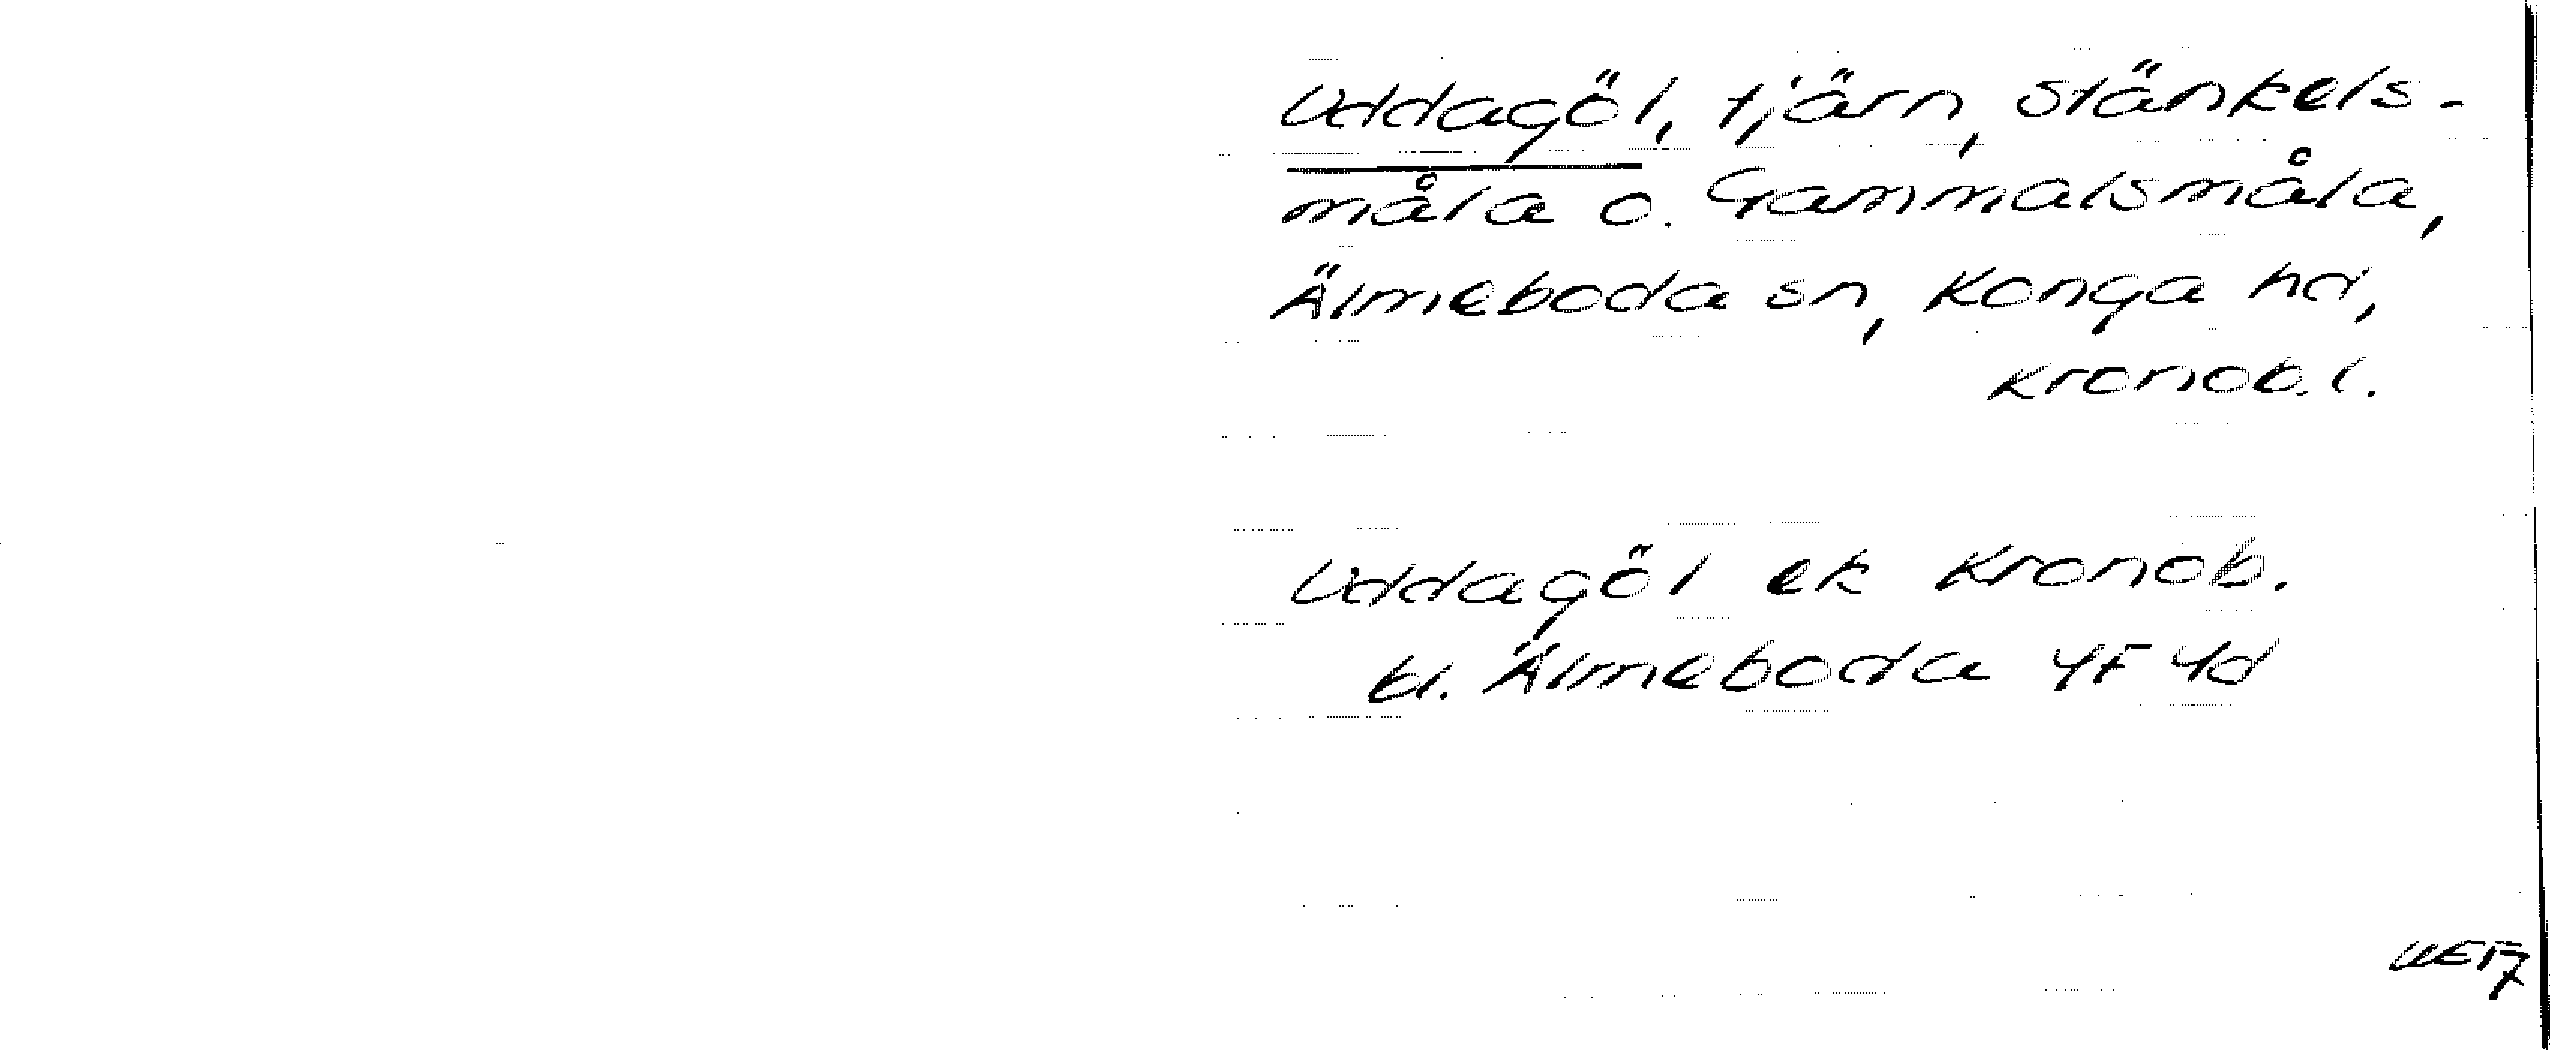 Uddagöl, tjärn, Stänkels-
måla o. Gammalsmåla,
Älmeboda sn, Konga hd,
Kronob. l.
Uddagöl ek Kronob.
bl. Älmeboda 4F 4d